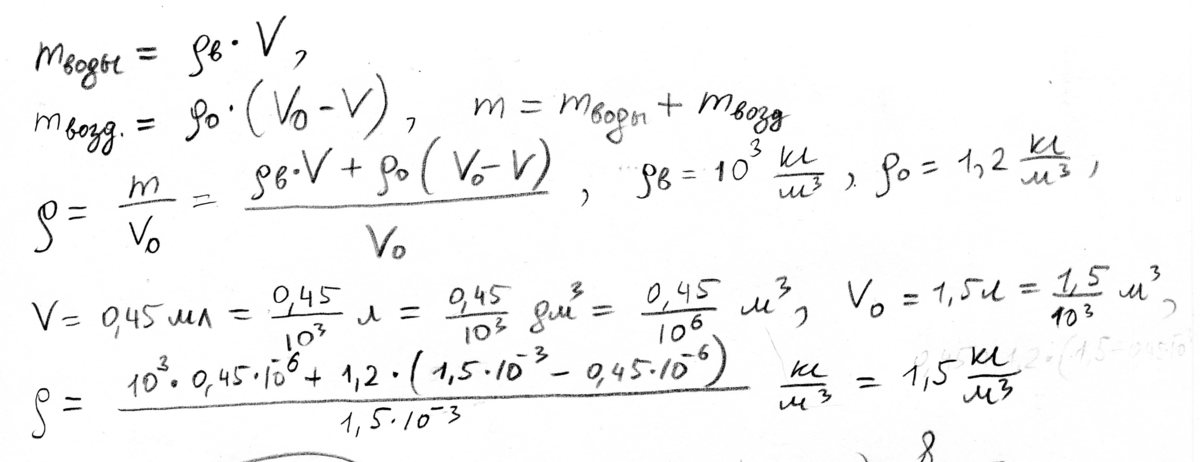 m воды = ρв · V,
m возд. = ρ0 · (V0 − V), m = m воды + m возд
ρ = m/V0 = (ρв·V + ρ0(V0−V))/V0, ρв = 10³ кг/м³, ρ0 = 1,2 кг/м³,
V = 0,45 мл = 0,45/10³ л = 0,45/10³ дм³ = 0,45/10⁶ м³, V0 = 1,5л = 1,5/10³ м³,
ρ = (10³·0,45·10⁻⁶ + 1,2·(1,5·10⁻³ − 0,45·10⁻⁶))/(1,5·10⁻³) кг/м³ = 1,5 кг/м³